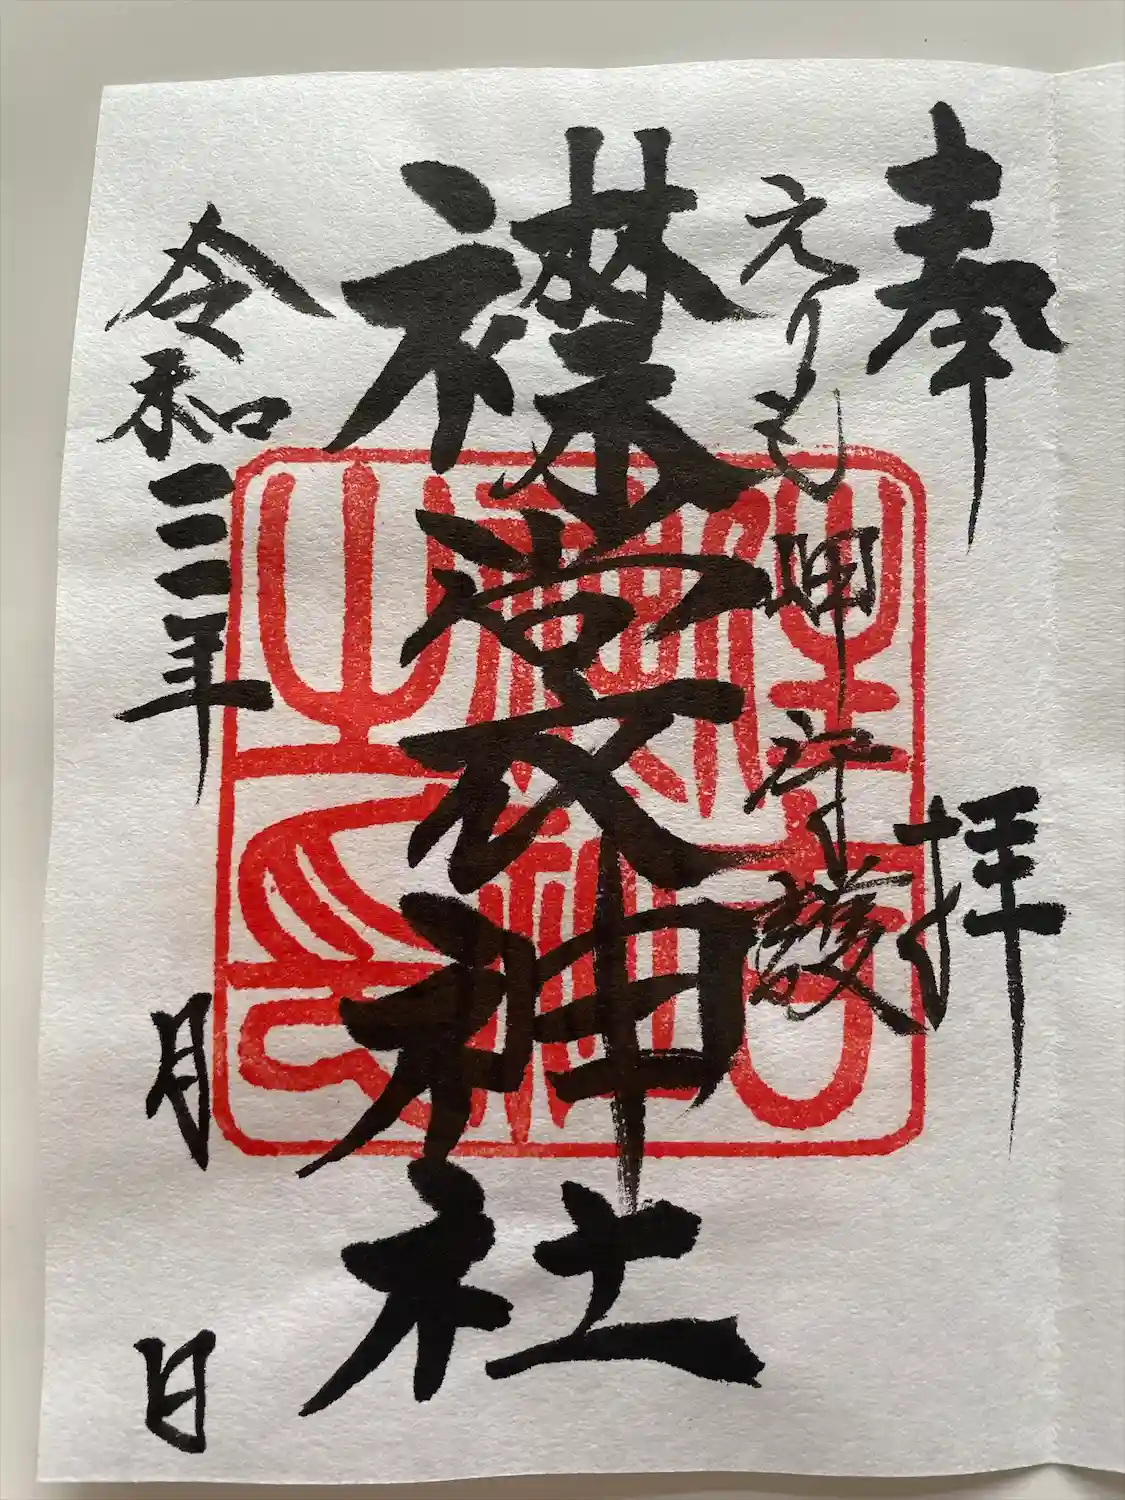 奉拝
えりも岬守護
襟裳神社
令和三年 月 日